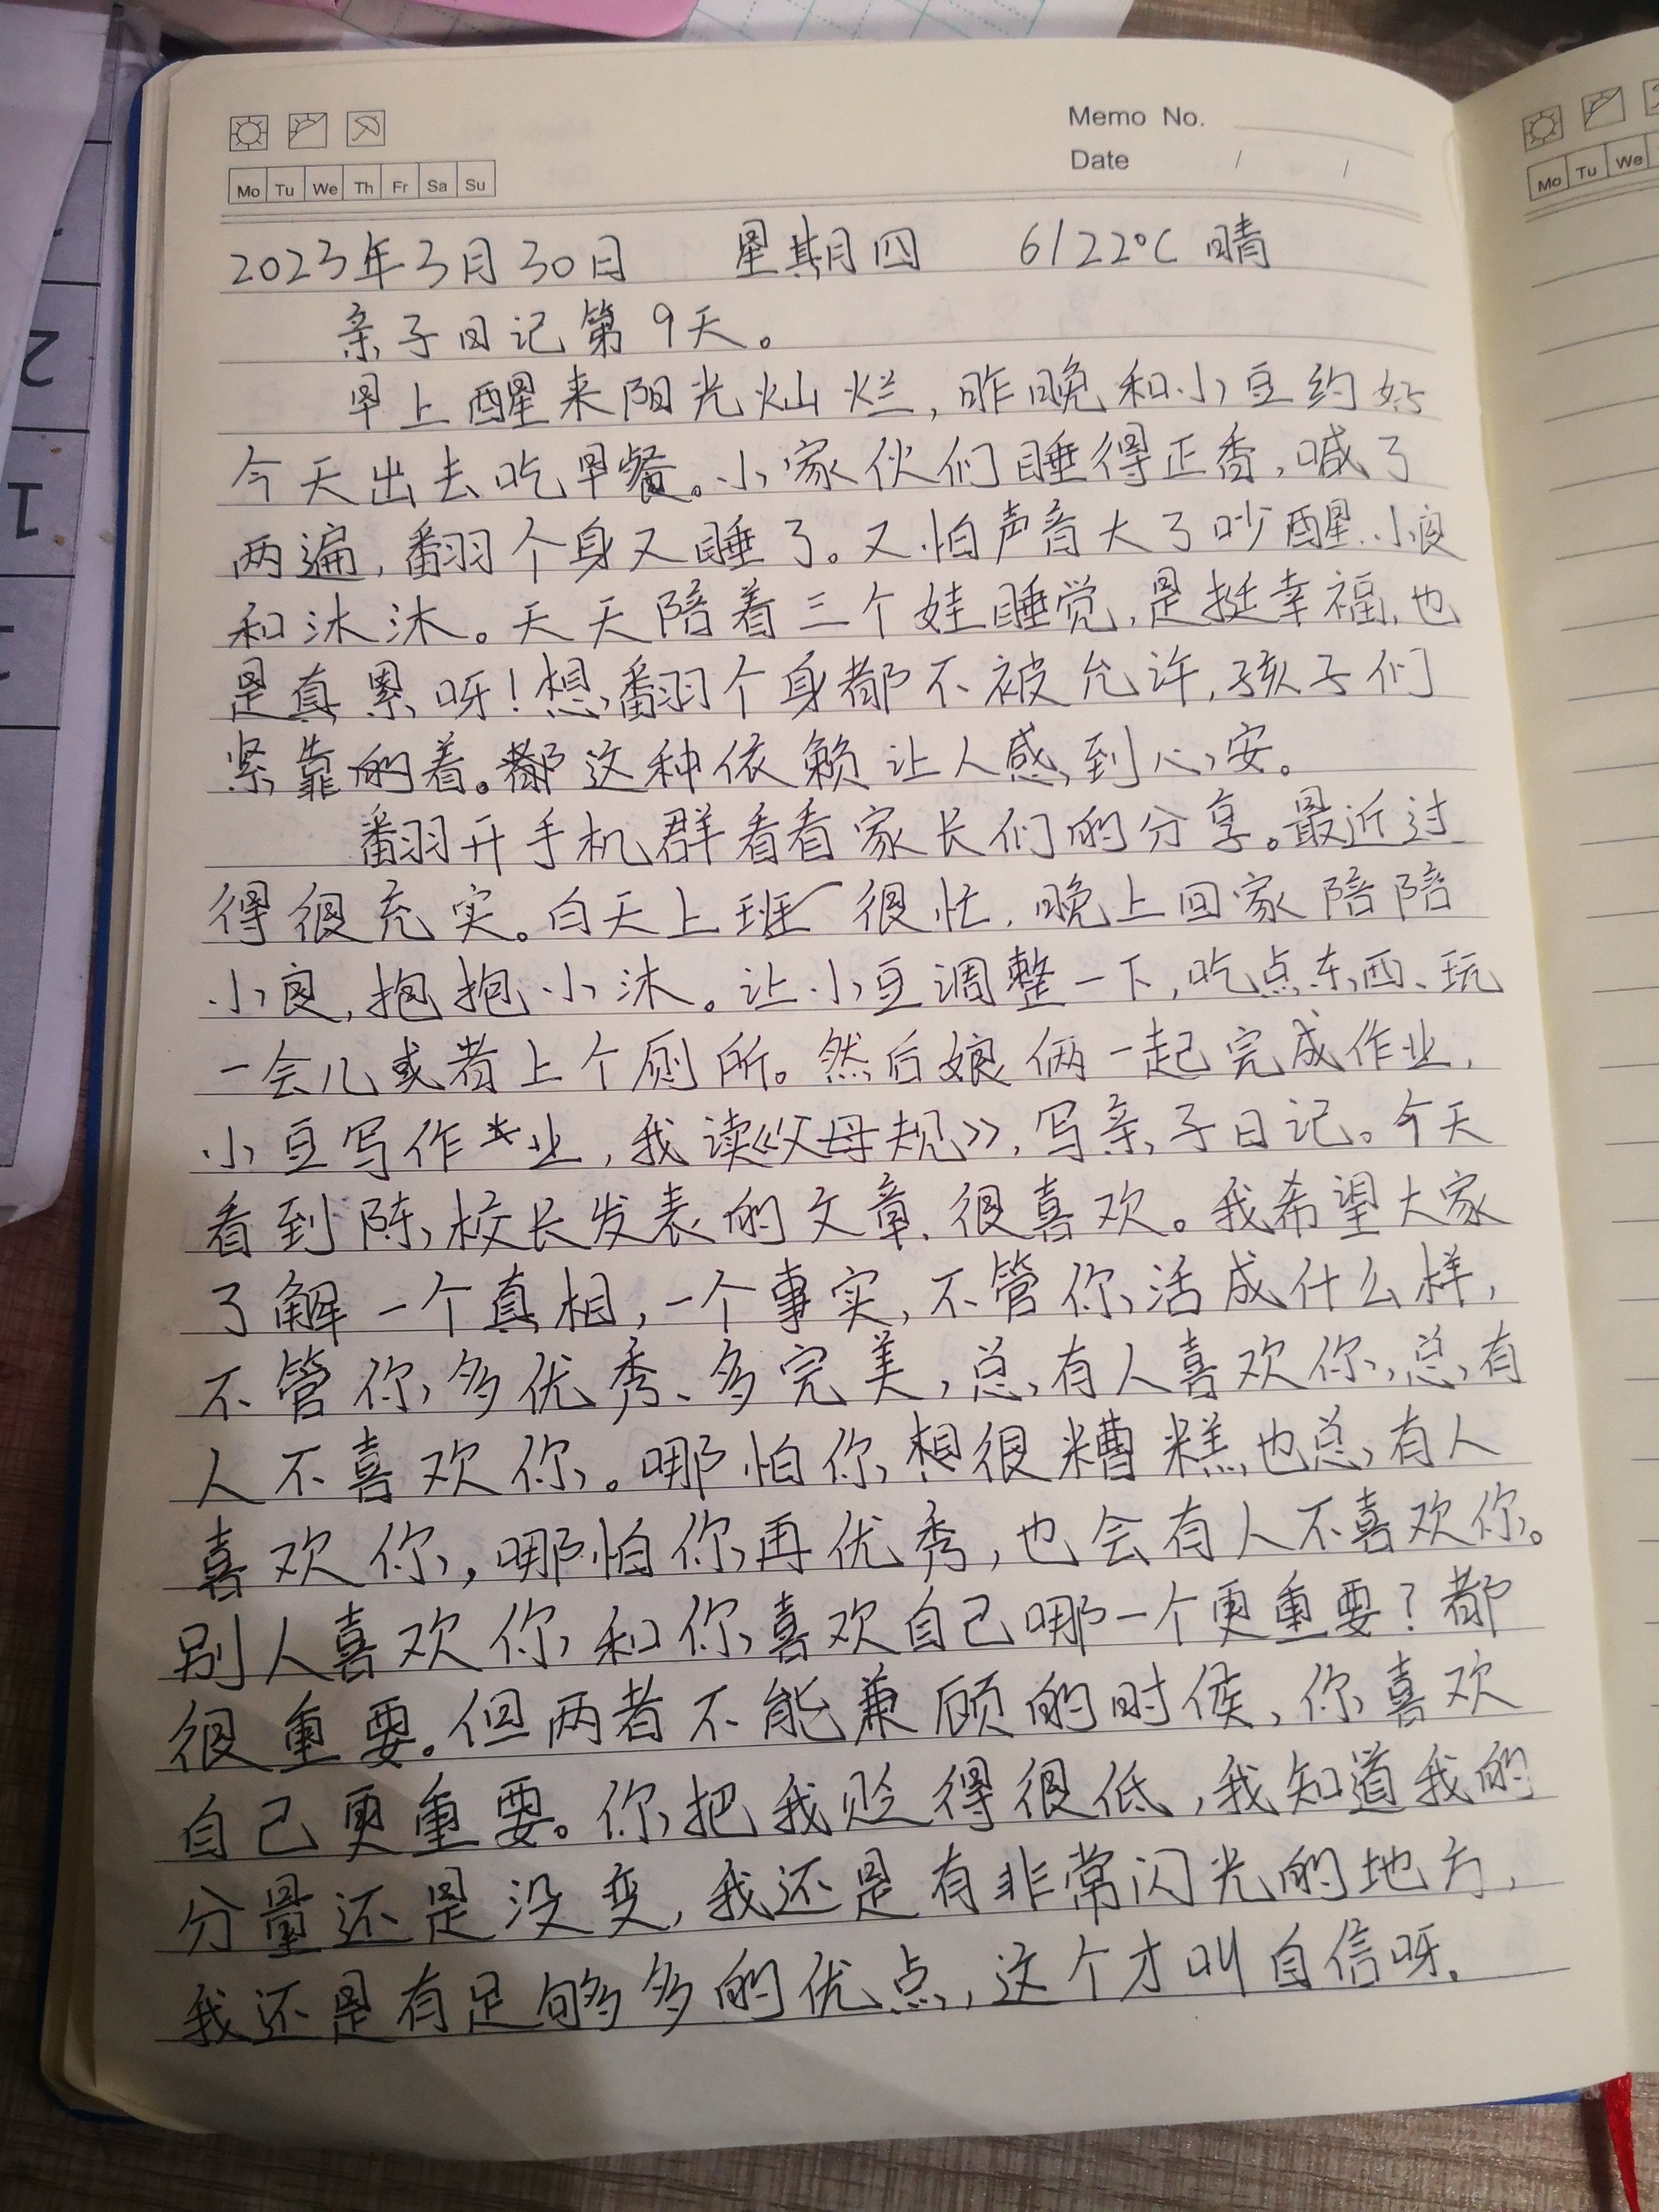 Memo No.
Date / /
Mo Tu We Th Fr Sa Su
Mo Tu We
2023年3月30日 星期四 6/22°C 晴
亲子日记第9天。
早上醒来阳光灿烂,昨晚和小豆约好
今天出去吃早餐。小家伙们睡得正香,喊了
两遍,翻个身又睡了。又怕声音大了吵醒小良
和沐沐。天天陪着三个娃睡觉,是挺幸福,也
是真累呀!想翻个身都不被允许,孩子们
紧靠的着。都这种依赖让人感到心安。
翻开手机群看看家长们的分享。最近过
得很充实。白天上班很忙,晚上回家陪陪
小良,抱抱小沐。让小豆调整一下,吃点东西、玩
一会儿或者上个厕所。然后娘俩一起完成作业,
小豆写作业,我读《父母规》,写亲子日记。今天
看到陈校长发表的文章,很喜欢。我希望大家
了解一个真相,一个事实,不管你活成什么样,
不管你多优秀、多完美,总有人喜欢你,总有
人不喜欢你。哪怕你想很糟糕,也总有人
喜欢你,哪怕你再优秀,也会有人不喜欢你。
别人喜欢你和你喜欢自己哪一个更重要?都
很重要。但两者不能兼顾的时候,你喜欢
自己更重要。你把我贬得很低,我知道我的
分量还是没变,我还是有非常闪光的地方,
我还是有足够多的优点,这个才叫自信呀。
2
1